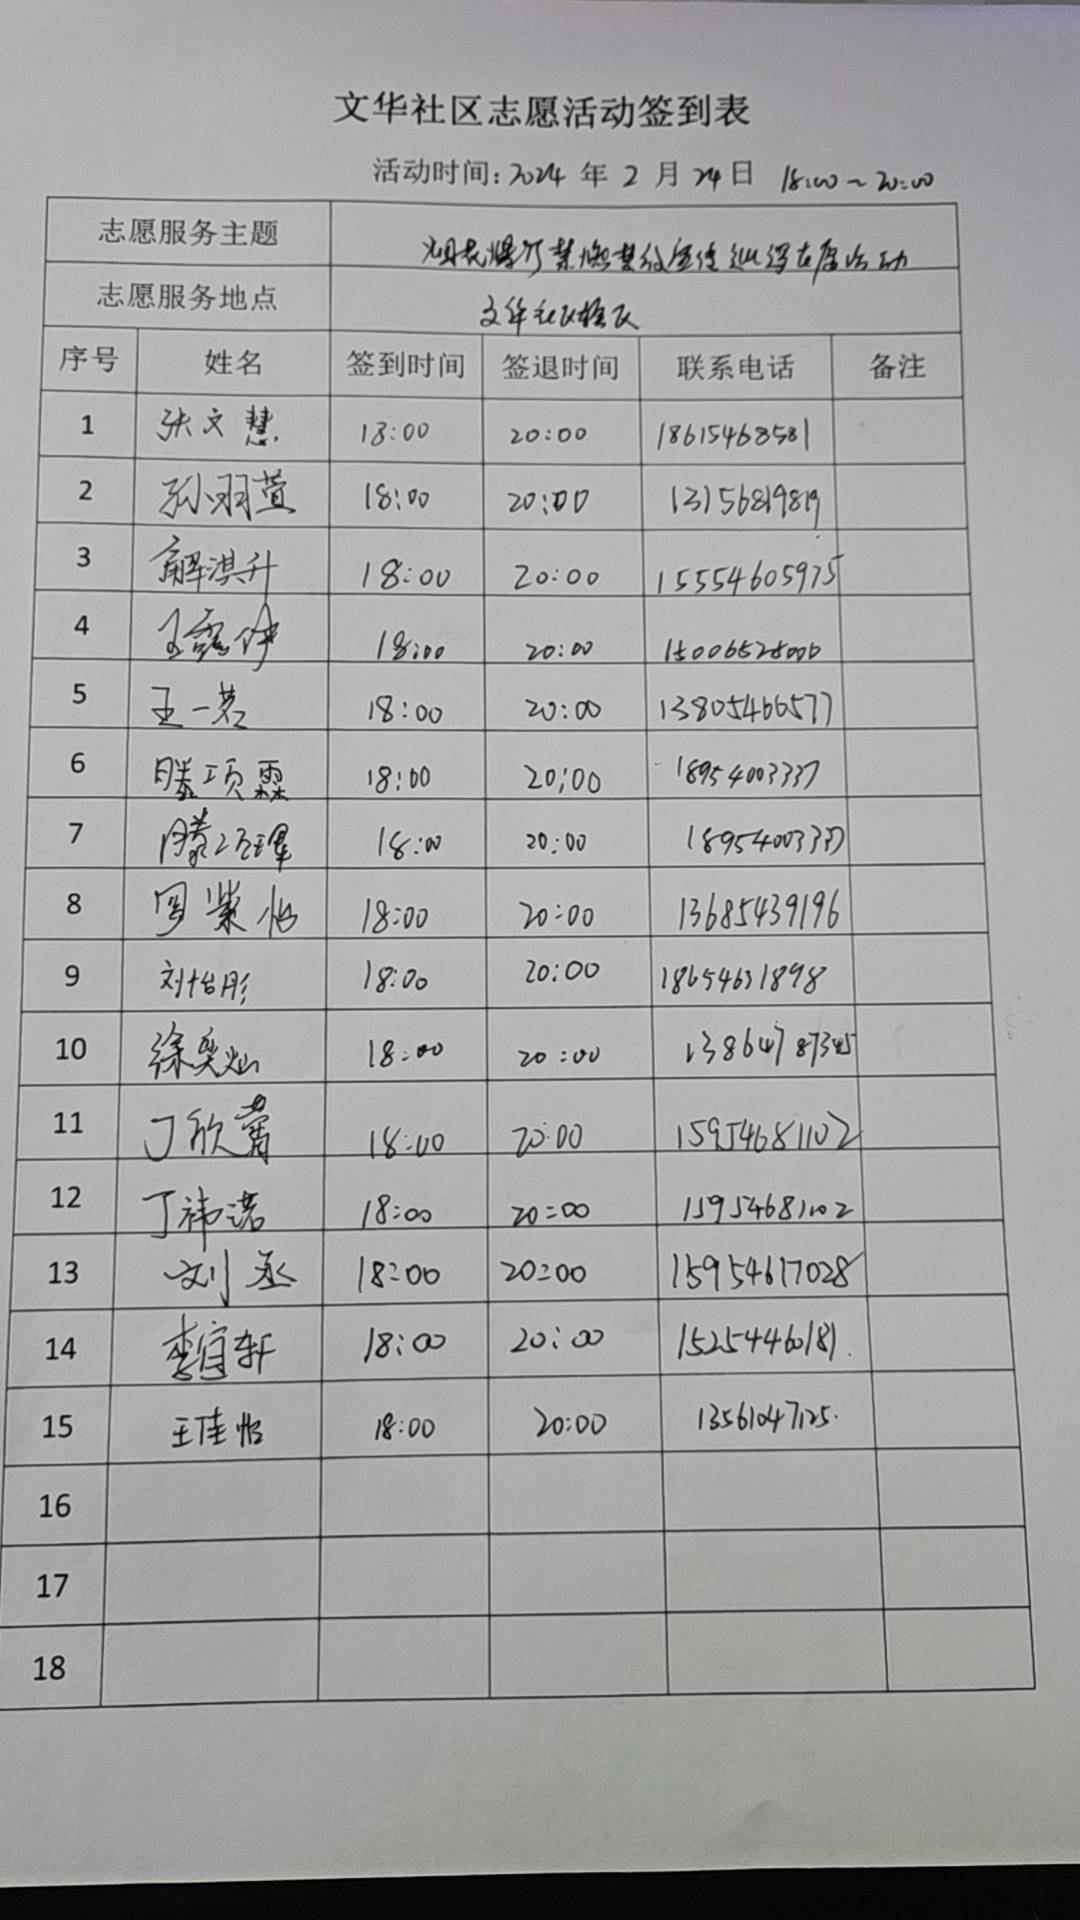 文华社区志愿活动签到表
活动时间：2024 年 2 月 24 日 18:00～20:00
志愿服务主题 烟花爆竹禁燃禁放宣传巡逻志愿活动
志愿服务地点 文华社区辖区
序号 姓名 签到时间 签退时间 联系电话 备注
1 张文慧 18:00 20:00 18615468581
2 孙羽萱 18:00 20:00 13156819819
3 解淇升 18:00 20:00 15554605975
4 王 18:00 20:00
5 王一茗 18:00 20:00 13805466577
6 滕项霖 18:00 20:00 18954003337
7 滕 18:00 20:00 18954003337
8 周紫怡 18:00 20:00 13685439196
9 刘怡彤 18:00 20:00 18654631898
10 徐奕灿 18:00 20:00 13864787345
11 丁欣 18:00 20:00 15954681102
12 丁祎诺 18:00 20:00 15954681102
13 刘丞 18:00 20:00 15954617028
14 李宜轩 18:00 20:00 15254460181.
15 王佳怡 18:00 20:00 13561047125.
16
17
18